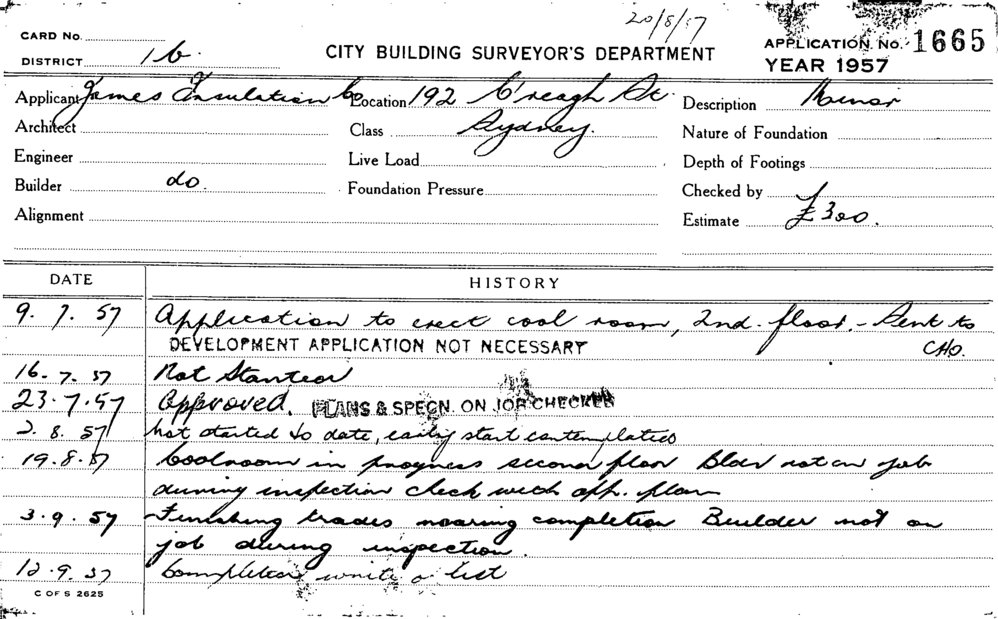 20/8/57
CARD No.
DISTRICT 1b.
CITY BUILDING SURVEYOR'S DEPARTMENT
APPLICATION No. 1665
YEAR 1957
Applicant James Insulation Co Location 192 C'reagh St. Description Minor
Architect Class Sydney. Nature of Foundation
Engineer Live Load Depth of Footings
Builder do. Foundation Pressure Checked by
Alignment Estimate £300.
DATE HISTORY
9.7.57 Application to erect cool room, 2nd. floor. - Sent to
DEVELOPMENT APPLICATION NOT NECESSARY CHO.
16.7.57 Not Started
23.7.57 Approved. PLANS & SPECN. ON JOB CHECKED
2.8.57 Not started to date, early start contemplated
19.8.57 Coolroom in progress second floor Bldr not on job
during inspection check with app. plan
3.9.57 Finishing trades nearing completion Builder not on
job during inspection.
12.9.57 Completed write a list
C OF S 2625